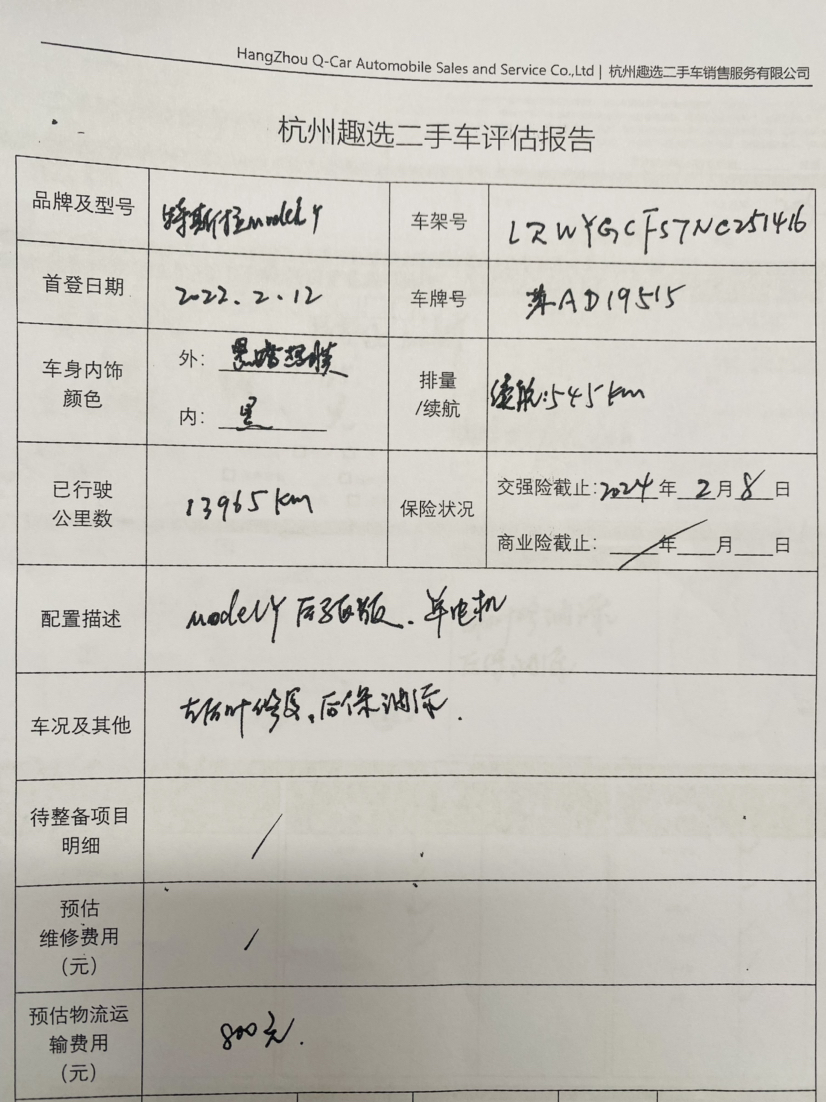 HangZhou Q-Car Automobile Sales and Service Co.,Ltd | 杭州趣选二手车销售服务有限公司
杭州趣选二手车评估报告
品牌及型号 特斯拉modelY 车架号 LRWYGCFS7NC251416
首登日期 2022.2.12 车牌号 苏AD19515
车身内饰
颜色
外:
内: 黑
排量
/续航
续航:545km
已行驶
公里数
13965km
保险状况
交强险截止:2024年2月8日
商业险截止: 年 月 日
配置描述 modelY 后驱版、单电机
车况及其他 左后叶修复,后保油漆.
待整备项目
明细
/
预估
维修费用
(元)
/
预估物流运
输费用
(元)
800元.